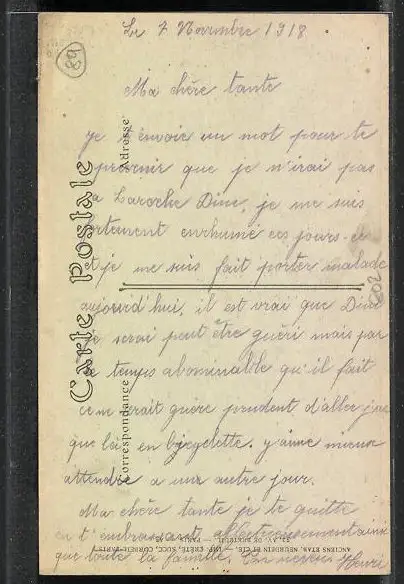 Le 7 Novembre 1918
89
Ma chère tante
Je t'envoie un mot pour te
prévenir que je n'irai pas
a Laroche Dim. je me suis
fortement enrhumé ces jours-ci
et je me suis fait porter malade
aujourd'hui, il est vrai que Dim
je serai peut être guéri mais par
le temps abominable qu'il fait
ce ne serait guère prudent d'aller jus
que là en bicyclette. j'aime mieux
attendre a une autre jour.
Ma chère tante je te quitte
en t'embrassant affectueusement ainsi
que toute la famille. Ton neveu Henri
Carte Postale
Correspondance
Adresse
ANCIENS ETAB. NEURDEIN ET CIE.